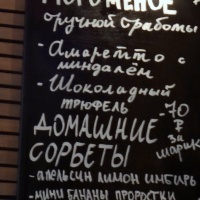 МОРОЖЕНОЕ
ручной работы
- Амаретто с
миндалём
- Шоколадный
трюфель
-70
₽
за
шарик
ДОМАШНИЕ
СОРБЕТЫ
- апельсин лимон имбирь
- мини бананы проростки